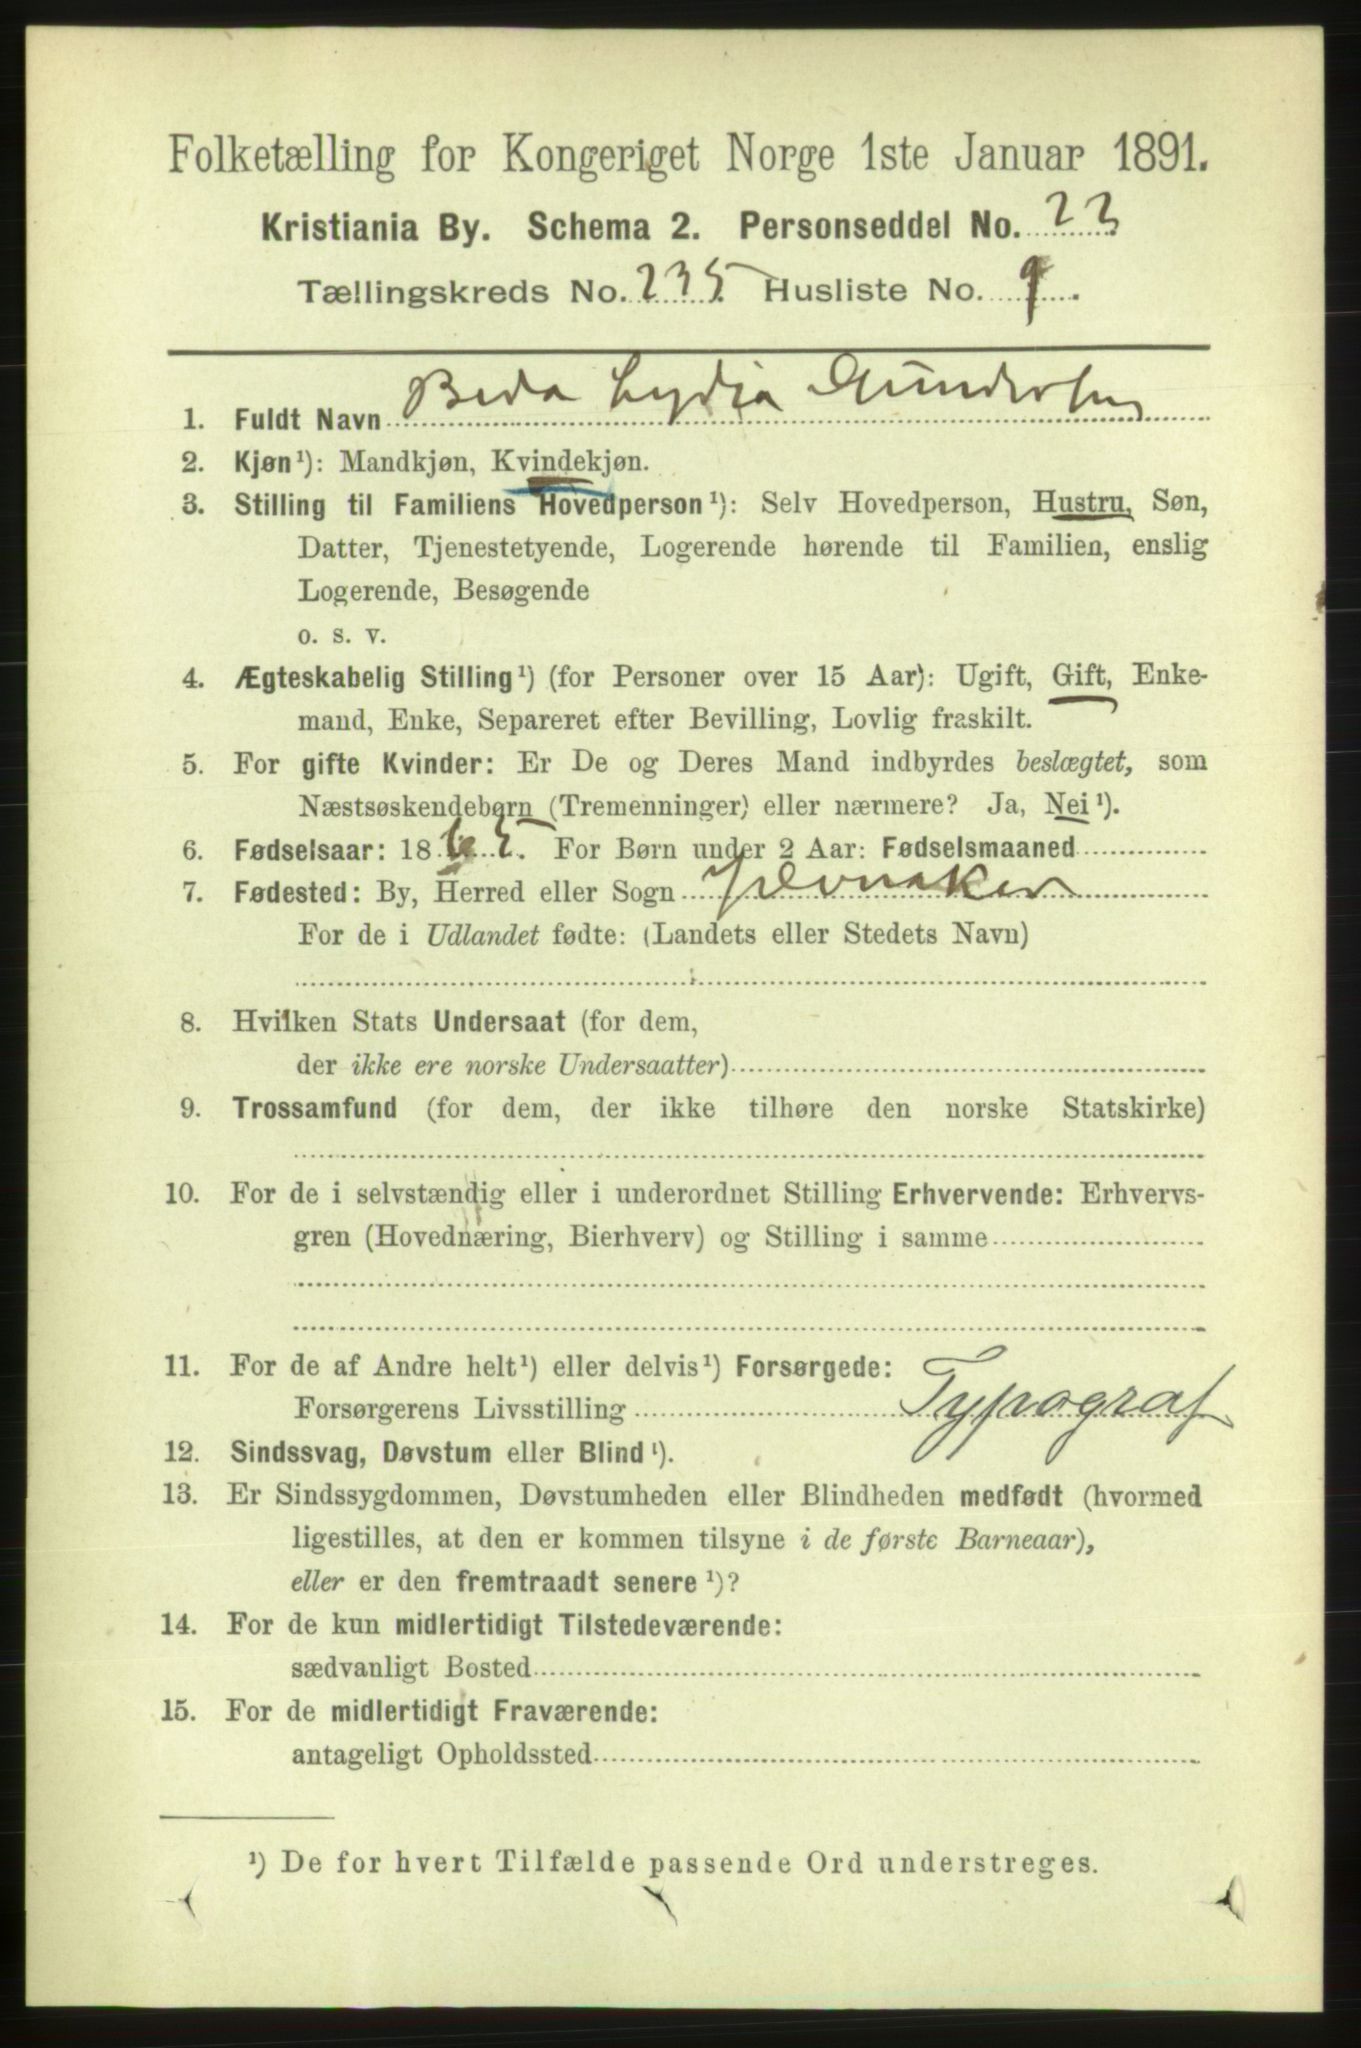 Folketælling for Kongeriget Norge 1ste Januar 1891.
Kristiania By. Schema 2. Personseddel No. 23
Tællingskreds No. 235 Husliste No. 9.
1. Fuldt Navn Beda Lydia Gundersen
2. Kjøn¹): Mandkjøn, Kvindekjøn.
3. Stilling til Familiens Hovedperson¹): Selv Hovedperson, Hustru, Søn,
Datter, Tjenestetyende, Logerende hørende til Familien, enslig
Logerende, Besøgende
o. s. v.
4. Ægteskabelig Stilling¹) (for Personer over 15 Aar): Ugift, Gift, Enke-
mand, Enke, Separeret efter Bevilling, Lovlig fraskilt.
5. For gifte Kvinder: Er De og Deres Mand indbyrdes beslægtet, som
Næstsøskendebørn (Tremenninger) eller nærmere? Ja, Nei¹).
6. Fødselsaar: 1865. For Børn under 2 Aar: Fødselsmaaned
7. Fødested: By, Herred eller Sogn Jevnaker
For de i Udlandet fødte: (Landets eller Stedets Navn)
8. Hvilken Stats Undersaat (for dem,
der ikke ere norske Undersaatter)
9. Trossamfund (for dem, der ikke tilhøre den norske Statskirke)
10. For de i selvstændig eller i underordnet Stilling Erhvervende: Erhvervs-
gren (Hovednæring, Bierhverv) og Stilling i samme
11. For de af Andre helt¹) eller delvis¹) Forsørgede:
Forsørgerens Livsstilling Typograf
12. Sindssvag, Døvstum eller Blind¹).
13. Er Sindssygdommen, Døvstumheden eller Blindheden medfødt (hvormed
ligestilles, at den er kommen tilsyne i de første Barneaar),
eller er den fremtraadt senere¹)?
14. For de kun midlertidigt Tilstedeværende:
sædvanligt Bosted
15. For de midlertidigt Fraværende:
antageligt Opholdssted
¹) De for hvert Tilfælde passende Ord understreges.